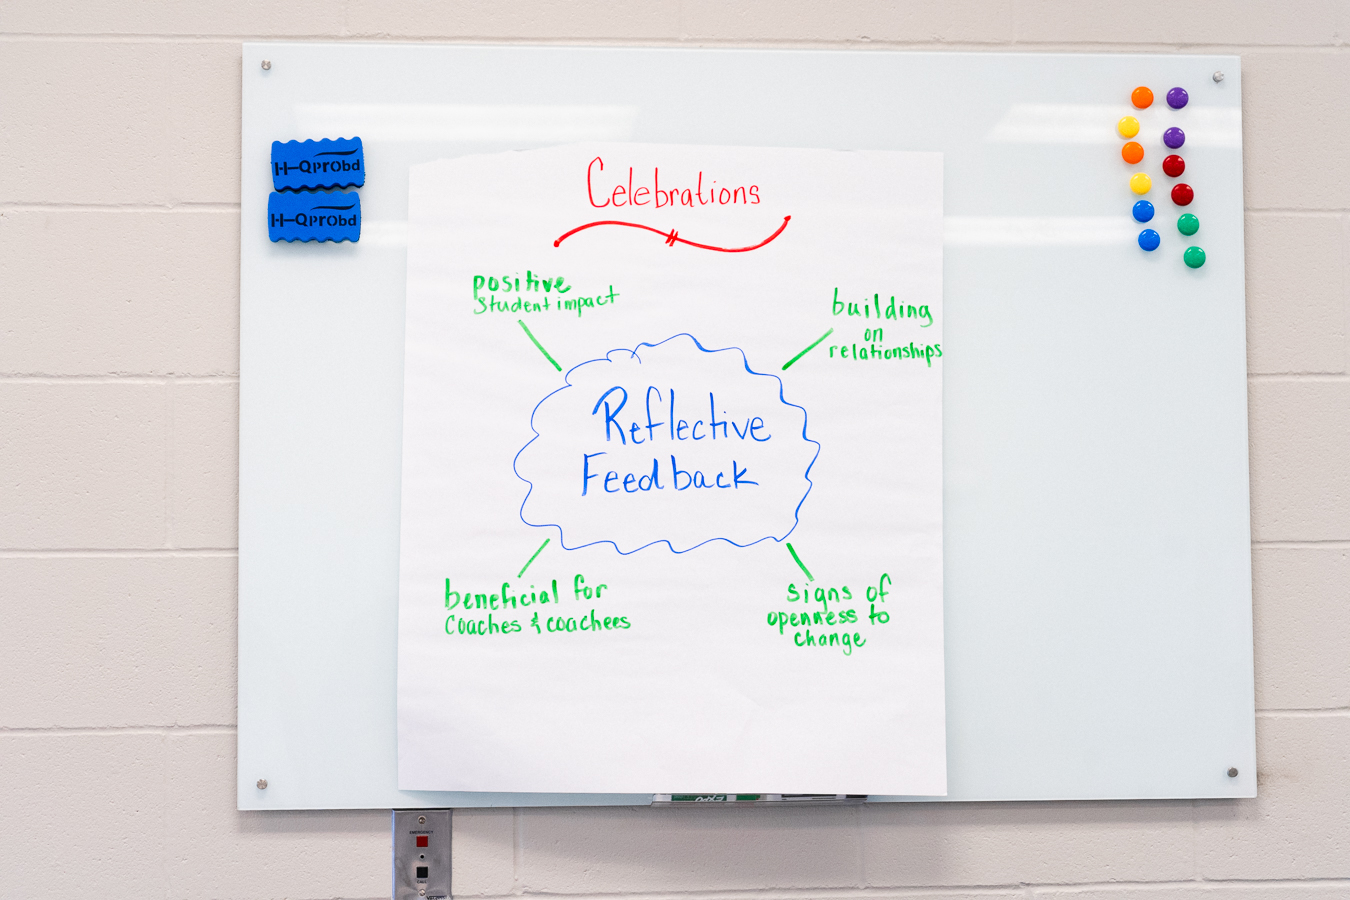 Celebrations
positive
student impact
building
on
relationships
Reflective
Feedback
beneficial for
coaches & coachees
signs of
openness to
change
H-Qprobd
H-Qprobd
EXPO
EMERGENCY
CALL